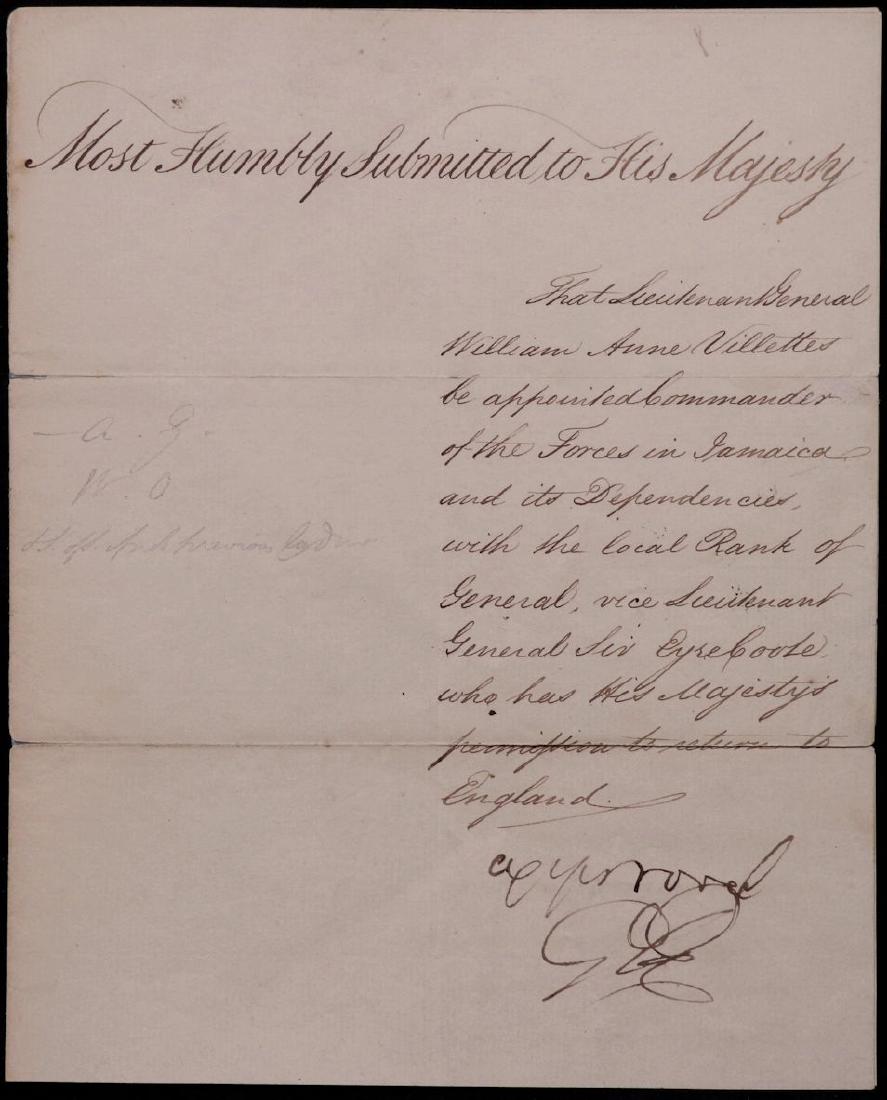 Most Humbly Submitted to His Majesty
That Lieutenant General
William Anne Villettes
be appointed Commander
of the Forces in Jamaica
and its Dependencies,
with the local Rank of
General, vice Lieutenant
General Sir Eyre Coote
who has His Majesty's
permission to return to
England.
approved
GR
A. G.
W. O